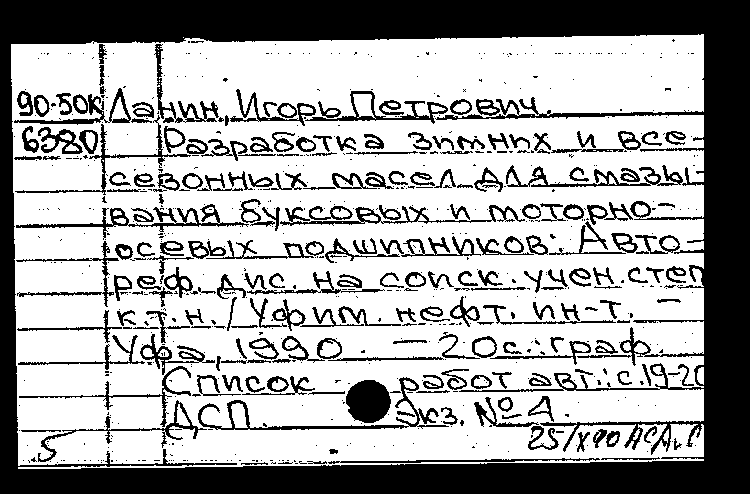 90-50к Ланин, Игорь Петрович.
6380 Разработка зимних и все-
сезонных масел для смазы-
вания буксовых и моторно-
осевых подшипников: Авто-
реф. дис. на соиск. учен. степ
к.т.н. / Уфим. нефт. ин-т. –
Уфа, 1990. – 20с.: граф.
Список работ авт.: с.19-20
ДСП. Экз. №4.
5 25/X90